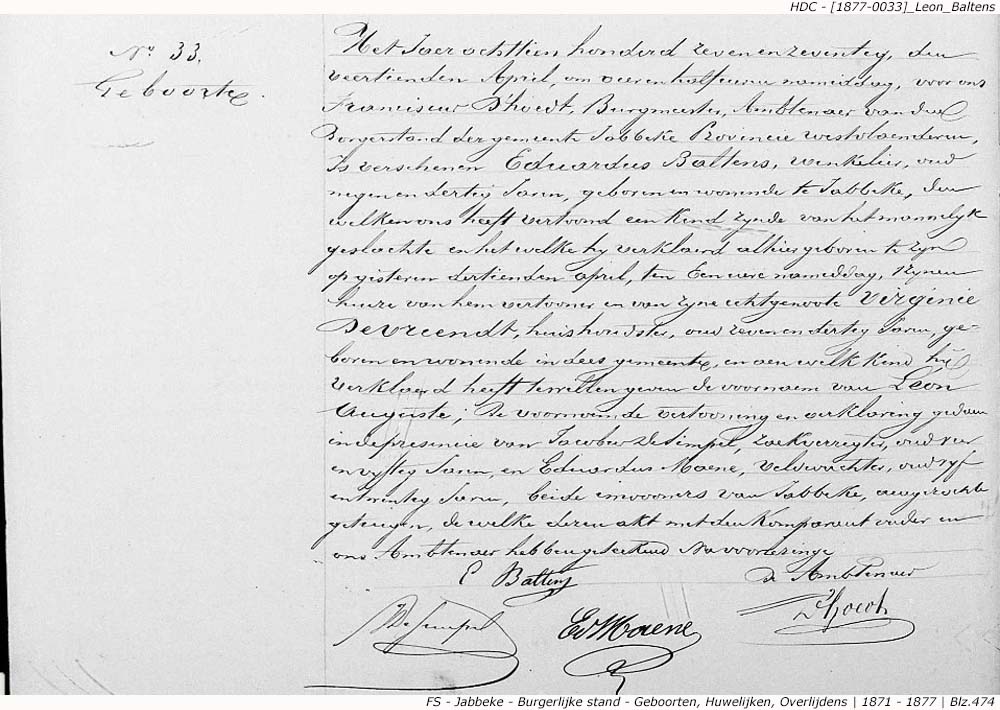 HDC - [1877-0033]_Leon_Baltens
N° 33.
Geboorte
Het Jaer achttien honderd zevenenzeventig, den
veertienden April, om vier en half uren namiddag, voor ons
Franciscus D'hoedt, Burgmeester, Ambtenaer van den
Borgerstand der gemeente Jabbeke Provincie westvlaenderen,
Is verschenen Eduardus Baltens, winkelier, oud
negen en dertig Jaren, geboren en wonende te Jabbeke, den
welken ons heeft vertoond een kind zynde van het mannelyk
geslachte en het welke hy verklaerd alhier geboren te zyn
op gisteren dertienden april, ten Een ure namiddag, tzynen
huize van hem vertooner en van zyne echtgenoote Virginie
DeVreendt, huishoudster, oud zeven en dertig Jaren, ge-
boren en wonende in dees gemeente, en aen welk kind hy
verklaerd heeft te willen geven de voornaem van Leon
Auguste; De voornoemde vertooning en verklaring gedaen
in de presencie van Jacobus deSimpel, zaekverrigter, oud vier
en vyftig Jaren, en Eduardus Maene, veldwachter, oud vyf
en twintig Jaren, beide inwooners van Jabbeke, aengezochte
getuigen, de welke dezen akt met den Komparant vader en
ons Ambtenaer hebben geteekend Na voorlezinge
E Baltens
De Ambtenaer
DeSimpel
Ed Maene
D'hoedt
FS - Jabbeke - Burgerlijke stand - Geboorten, Huwelijken, Overlijdens | 1871 - 1877 | Blz.474